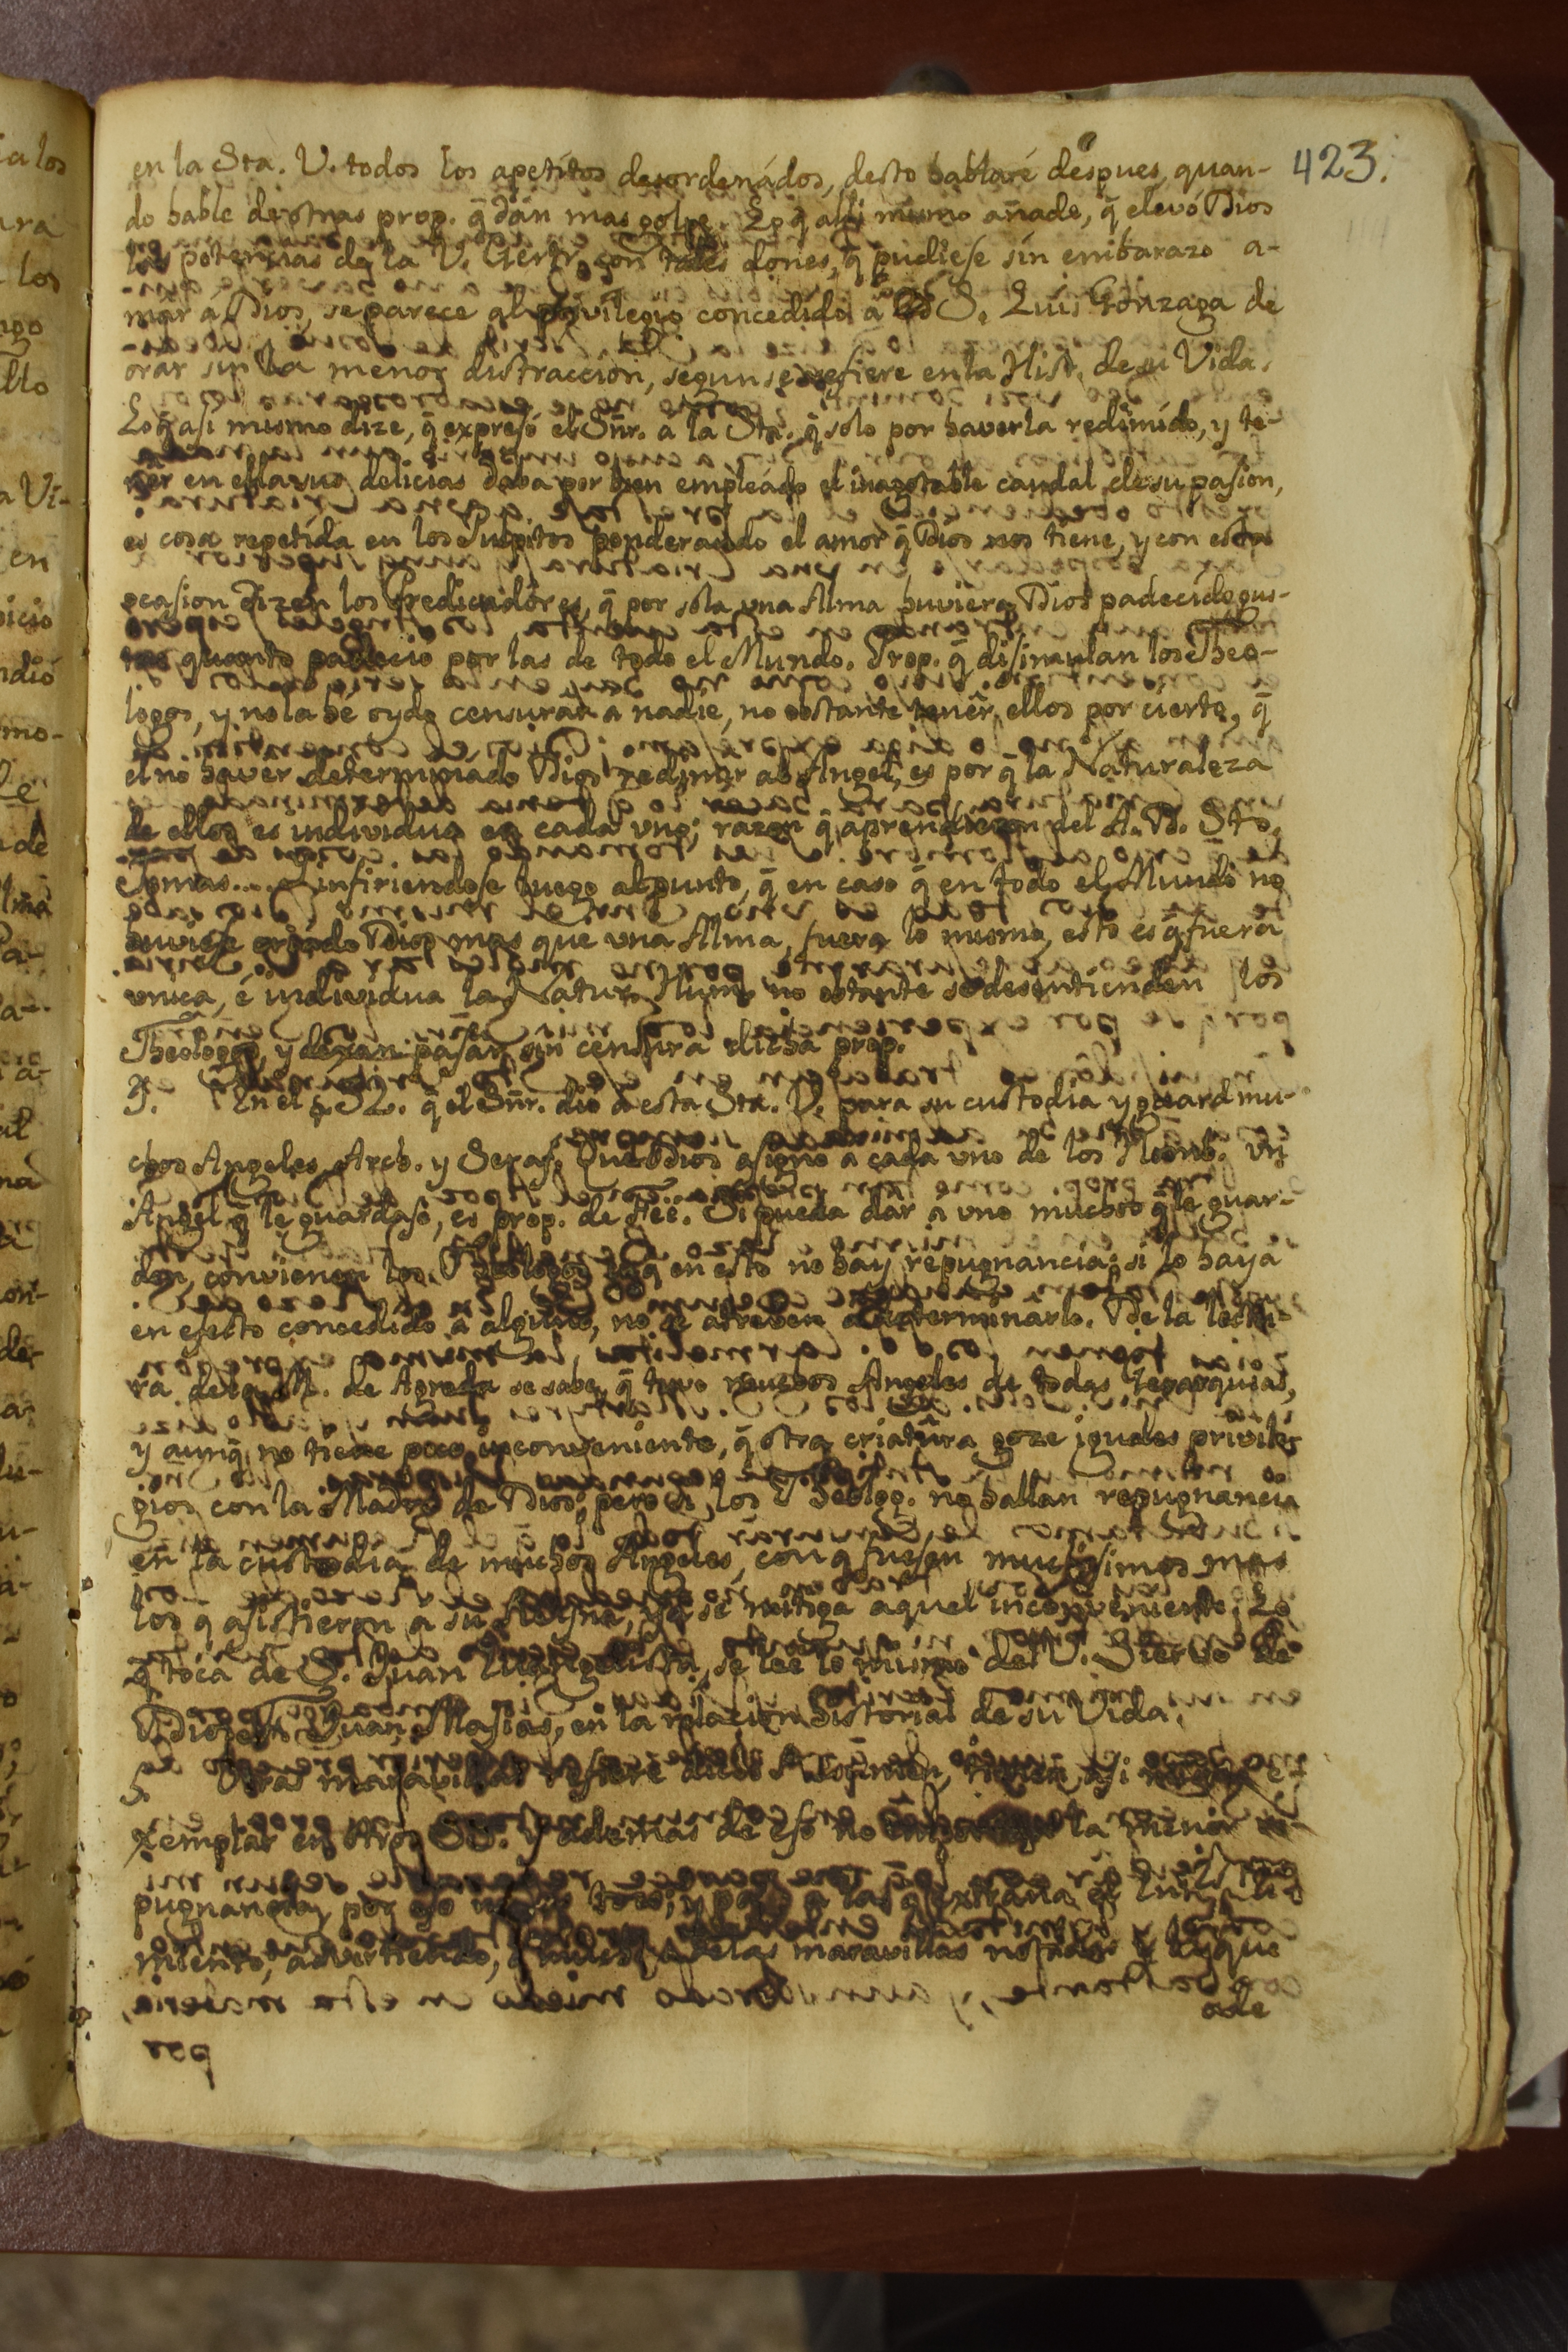 423.
en la Sta. V. todos los apetitos desordenados, desto hablaré despues, quan-
do hable de otras prop. q̃ dán mas golpe. Lo q̃ alli mismo añade, q̃ elevó Dios
las potencias de la V. Gertr. con tales dones, q̃ pudiese sin embarazo a-
mar á Dios, se parece al privilegio concedido á S. Luis Gonzaga de
orar sin la menor distraccion, segun se refiere en la Hist. de su Vida.
Lo q̃ asi mismo dize, q̃ expresó el Sñr. á la Sta. q̃ solo por haverla redimido, y te-
ner en ella sus delicias daba por bien empleado el inagotable caudal de su pasion,
es cosa repetida en los Pulpitos ponderando el amor q̃ Dios nos tiene, y con esta
ocasion dizen los Predicadores, q̃ por sola una Alma huviera Dios padecido gus-
quanto padecio por las de todo el Mundo. Prop. q̃ disimulan los Theo-
logos, y no la he oydo censurar a nadie, no obstante tener ellos por cierto, q̃
el no haver determinado Dios redimir al Angel, es por q̃ la Naturaleza
de ellos es individua en cada uno; razon q̃ aprendieron del A. D. Sto.
Tomas.... infiriendose luego al punto, q̃ en caso q̃ en todo el Mundo no
huviese criado Dios mas que una Alma, fuera lo mismo, esto es q̃ fuera
unica, é individua la Natur. Hum. no obstante se desentienden los
Theologos, y dexan pasar sin censura dicha prop.
En el § 52. q̃ el Sñr. dió a esta Sta. V. para su custodia y guard mu-
chos Angeles, Arch. y Seraf. Que Dios asigno a cada uno de los Homb. un
Angel q̃ le guardase, es prop. de Fee. Si pueda dar a uno muchos q̃ le guar-
den, convienen los Theologos q̃ en esto no hay repugnancia; si lo haya
en efecto concedido á alguno, no se atreven a determinarlo. De la lectu-
ra de la M. de Agreda se sabe, q̃ tuvo muchos Angeles de todas Gerarquias,
y aunq̃ no tiene poco inconveniente, q̃ otra criatura goze iguales privile-
gios con la Madre de Dios, pero si los Theolog. no hallan repugnancia
en la custodia de muchos Angeles, con q̃ fuesen muchisimos mas
los q̃ asistieron a su Reyna, ya se mitiga aquel inconveniente. Lo
q̃ toca de S. Juan Evangelista, se lee lo mismo del V. Siervo de
Dios Fr. Juan Masias, en la relacion historial de su Vida.
5. Otras maravillas refiere dicho
xemplar en otros SS. y ademas de eso no la menor re-
pugnancia, por eso y paso a las q̃ extraña el Entendi-
miento, advirtiendo, de las maravillas notadas y las que
ade